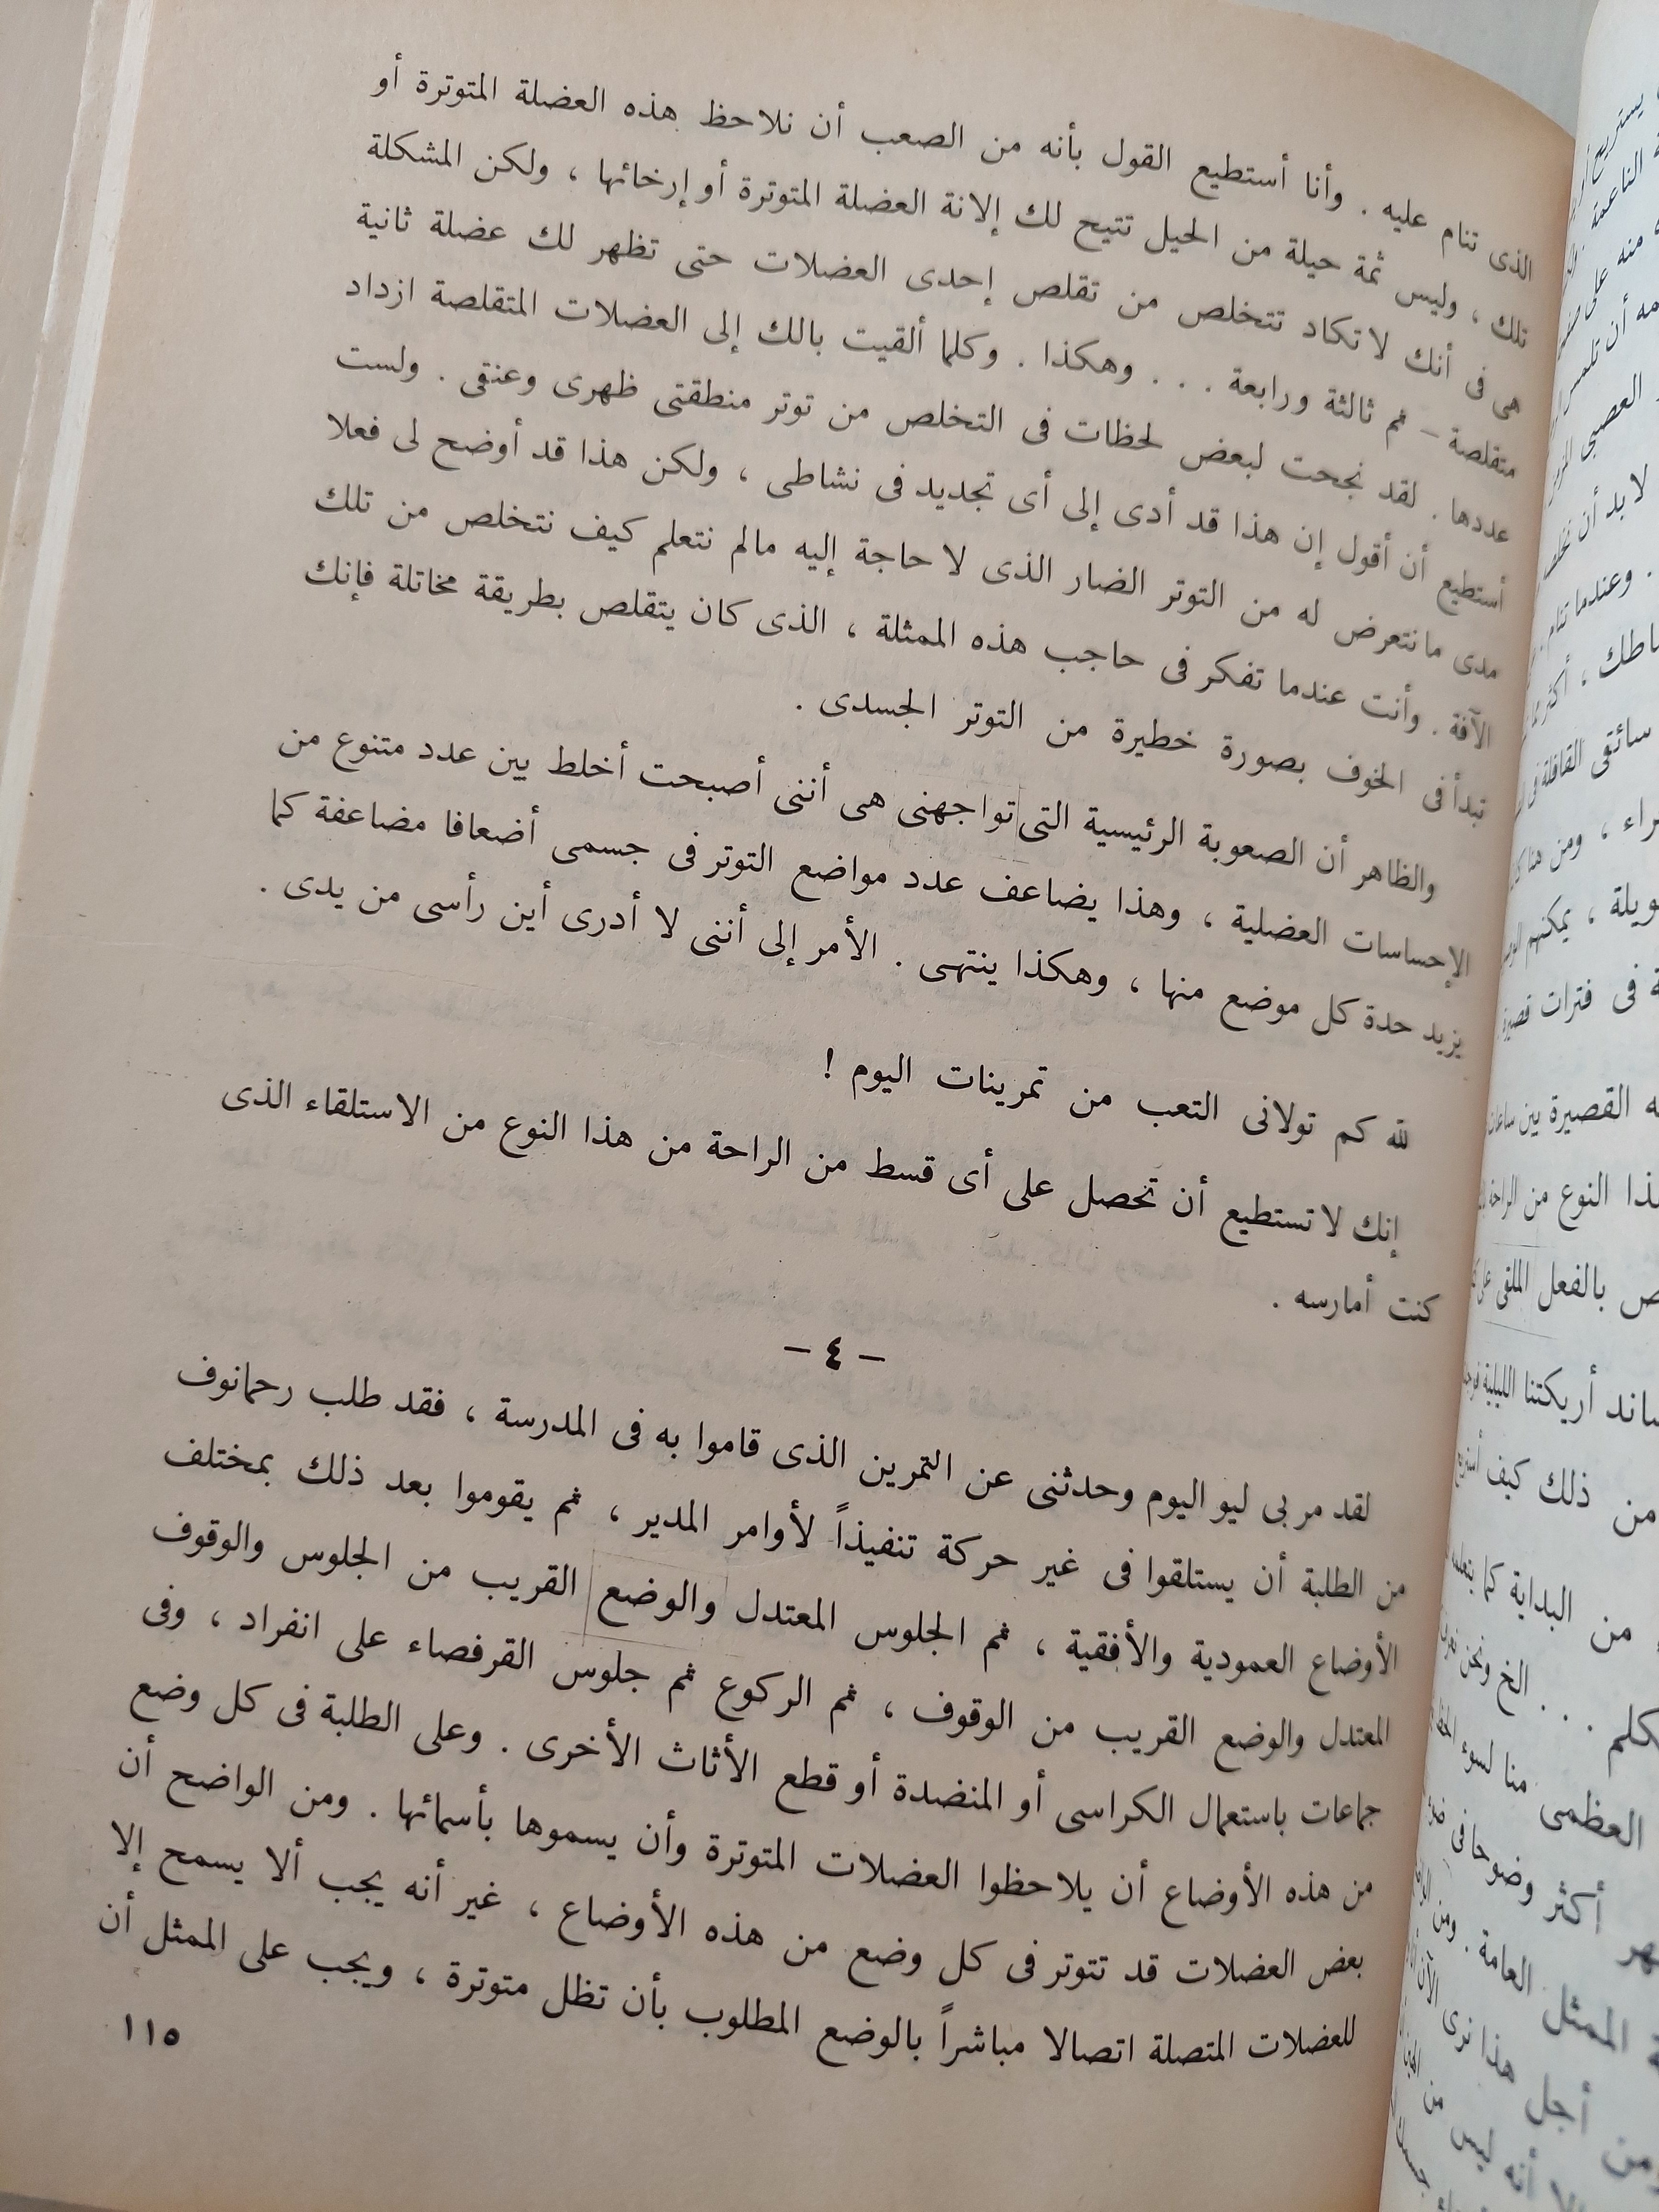 الذى تنام عليه . وأنا أستطيع القول بأنه من الصعب أن نلاحظ هذه العضلة المتوترة أو
تلك ، وليس ثمة حيلة من الحيل تتيح لك إلانة العضلة المتوترة أو إرخائها ، ولكن المشكلة
هى فى أنك لا تكاد تتخلص من تقلص إحدى العضلات حتى تظهر لك عضلة ثانية
متقلصة – ثم ثالثة ورابعة . . . وهكذا . وكلما ألقيت بالك إلى العضلات المتقلصة ازداد
عددها . لقد نجحت لبعض لحظات فى التخلص من توتر منطقتى ظهرى وعنقى . ولست
أستطيع أن أقول إن هذا قد أدى إلى أى تجديد فى نشاطى ، ولكن هذا قد أوضح لى فعلا
مدى ما نتعرض له من التوتر الضار الذى لا حاجة إليه مالم نتعلم كيف نتخلص من تلك
الآفة . وأنت عندما تفكر فى حاجب هذه الممثلة ، الذى كان يتقلص بطريقة مخاتلة فإنك
تبدأ فى الخوف بصورة خطيرة من التوتر الجسدى .
والظاهر أن الصعوبة الرئيسية التى تواجهنى هى أننى أصبحت أخلط بين عدد متنوع من
الإحساسات العضلية ، وهذا يضاعف عدد مواضع التوتر فى جسمى أضعافا مضاعفة كما
يزيد حدة كل موضع منها ، وهكذا ينتهى . الأمر إلى أننى لا أدرى أين رأسى من يدى .
لله كم تولانى التعب من تمرينات اليوم !
إنك لا تستطيع أن تحصل على أى قسط من الراحة من هذا النوع من الاستلقاء الذى
كنت أمارسه .
– ٤ –
لقد مر بى ليو اليوم وحدثنى عن التمرين الذى قاموا به فى المدرسة ، فقد طلب رحمانوف
من الطلبة أن يستلقوا فى غير حركة تنفيذاً لأوامر المدير ، ثم يقوموا بعد ذلك بمختلف
الأوضاع العمودية والأفقية ، ثم الجلوس المعتدل والوضع القريب من الجلوس والوقوف
المعتدل والوضع القريب من الوقوف ، ثم الركوع ثم جلوس القرفصاء على انفراد ، وفى
جماعات باستعمال الكراسى أو المنضدة أو قطع الأثاث الأخرى . وعلى الطلبة فى كل وضع
من هذه الأوضاع أن يلاحظوا العضلات المتوترة وأن يسموها بأسمائها . ومن الواضح أن
بعض العضلات قد تتوتر فى كل وضع من هذه الأوضاع ، غير أنه يجب ألا يسمح إلا
للعضلات المتصلة اتصالا مباشراً بالوضع المطلوب بأن تظل متوترة ، ويجب على الممثل أن
١١٥
يستريح
الناعمة
منه على
أن
العصبى
لا بد أن
. وعندما تنام
، أكثر
سائقى القافلة
، ومن هنا
، يمكنهم
فى فترات قصيرة
القصيرة بين ساعات
النوع من الراحة
بالفعل الملقى على
أريكتنا الليلية
من ذلك كيف
من البداية كما
. . . الخ ونحن
العظمى منا لسوء
أكثر وضوحا فى
الممثل العامة . ومن
أجل هذا نرى الآن
أنه ليس من